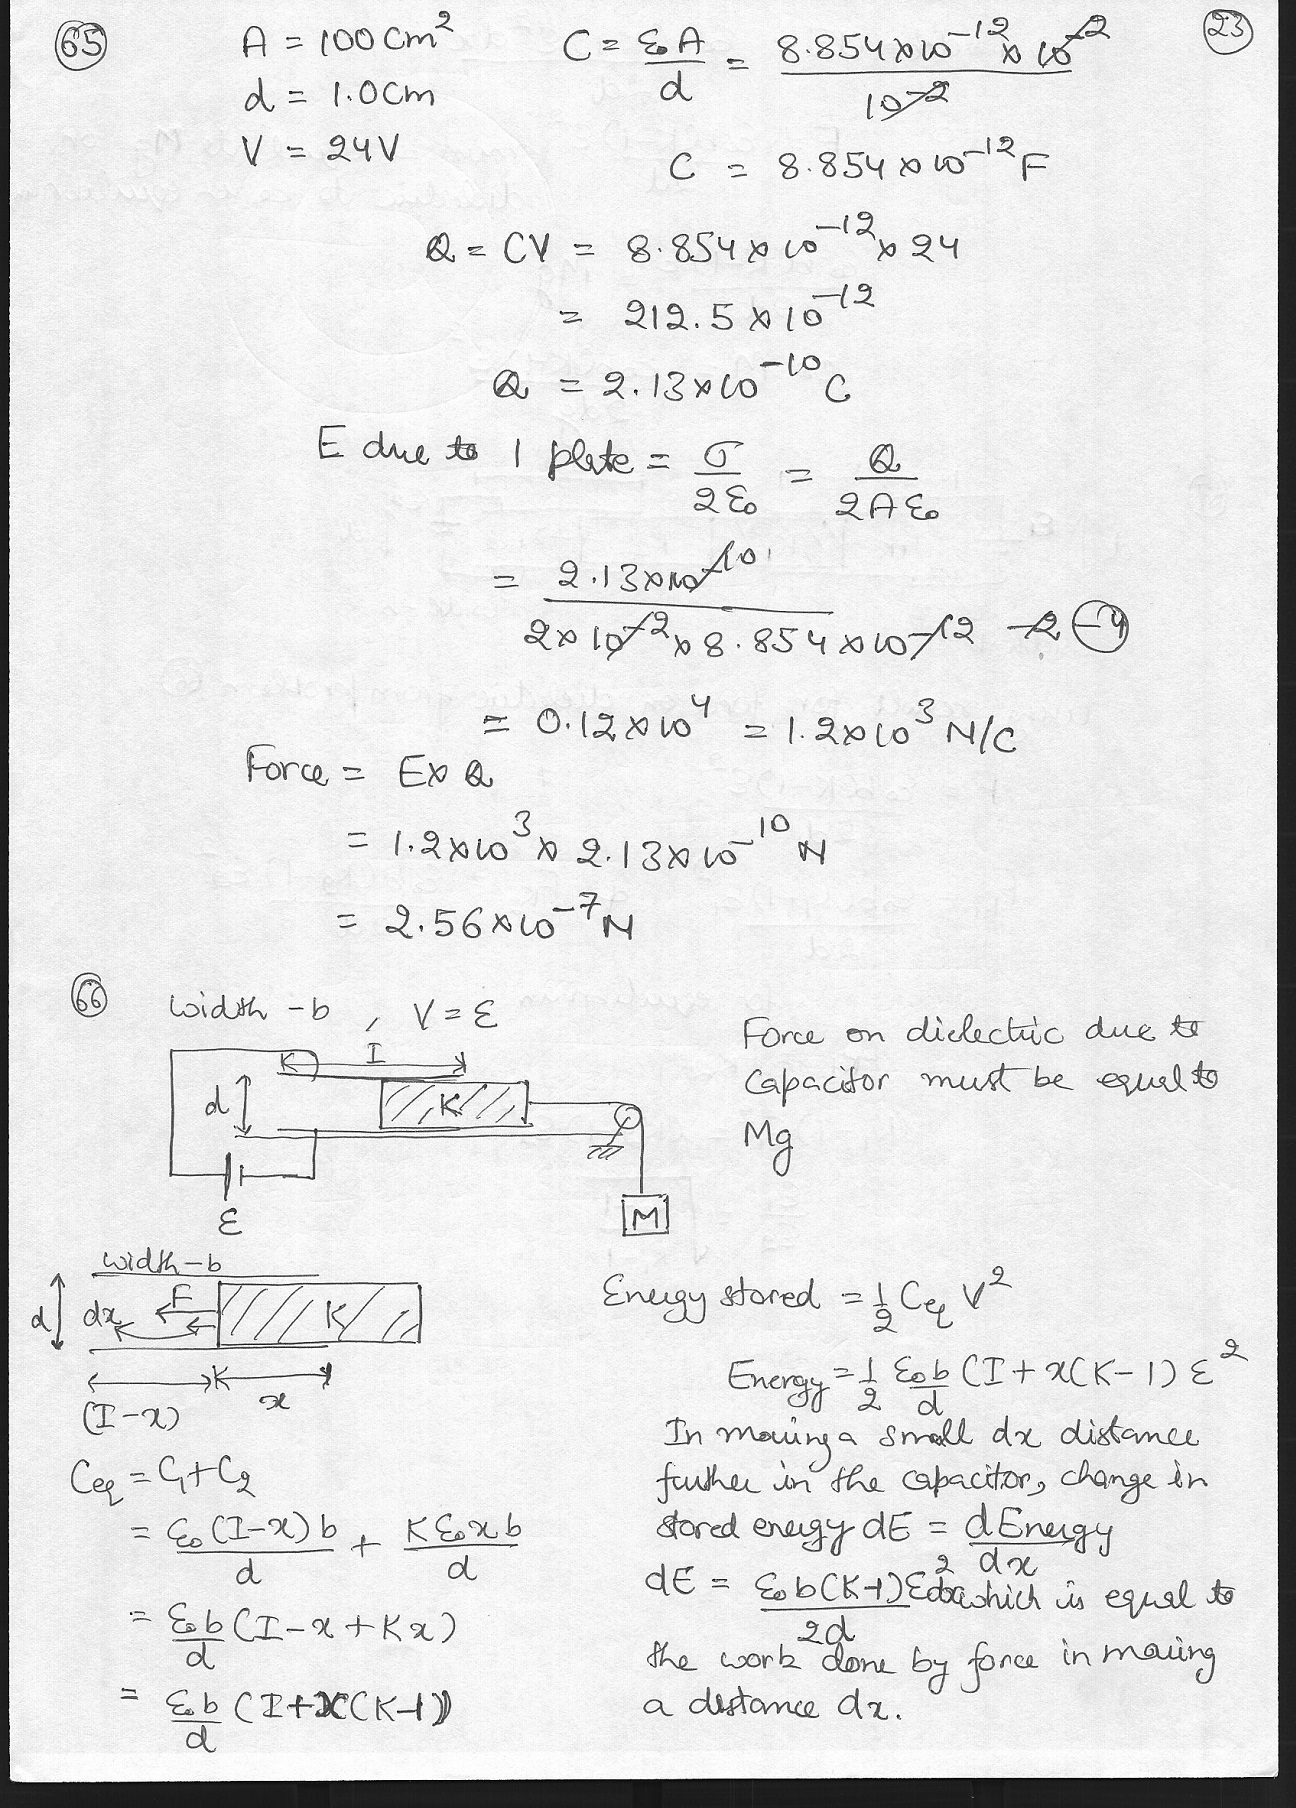 65
23
A = 100 cm²
d = 1.0 cm
V = 24V
C = ε₀A/d = 8.854×10⁻¹² × 10⁻²/10⁻²
C = 8.854×10⁻¹² F
Q = CV = 8.854×10⁻¹² × 24
= 212.5×10⁻¹²
Q = 2.13×10⁻¹⁰ C
E due to 1 plate = σ/2ε₀ = Q/2Aε₀
= 2.13×10⁻¹⁰/2×10⁻²×8.854×10⁻¹² -2 -4
= 0.12×10⁴ = 1.2×10³ N/C
Force = E×Q
= 1.2×10³ × 2.13×10⁻¹⁰ N
= 2.56×10⁻⁷ N
66
width - b , V = ε
I
d
K
ε
M
Force on dielectric due to
capacitor must be equal to
Mg
width - b
d
dx
F
K
(I-x)
x
Ceq = C₁+C₂
= ε₀(I-x)b/d + Kε₀xb/d
= ε₀b/d (I-x+Kx)
= ε₀b/d (I+x(K-1))
Energy stored = 1/2 Ceq V²
Energy = 1/2 ε₀b/d (I+x(K-1) ε²
In moving a small dx distance
further in the capacitor, change in
stored energy dE = dEnergy/dx
dE = ε₀b(K-1)ε²dx/2d which is equal to
the work done by force in moving
a distance dx.